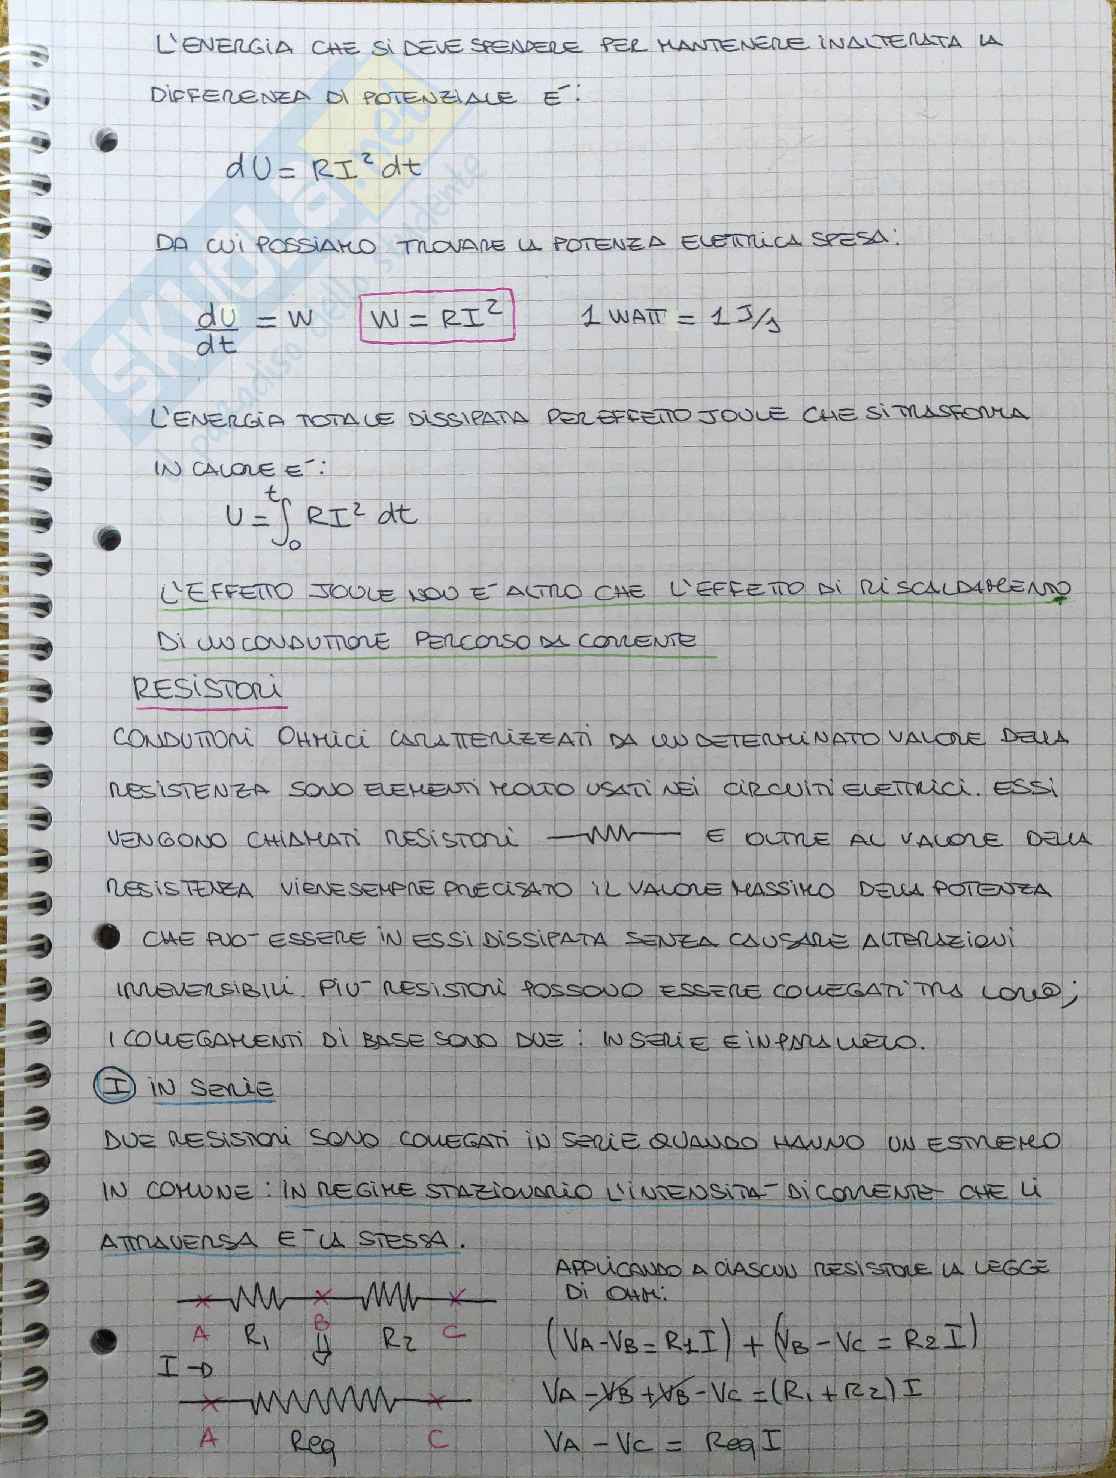 L'ENERGIA CHE SI DEVE SPENDERE PER MANTENERE INALTERATA LA
DIFFERENZA DI POTENZIALE E-:
dU = RI² dt
DA CUI POSSIAMO TROVARE LA POTENZA ELETTRICA SPESA:
dU/dt = W   W = RI²   1 WATT = 1 J/s
L'ENERGIA TOTALE DISSIPATA PER EFFETTO JOULE CHE SI TRASFORMA
IN CALORE E-:
U = ∫₀ᵗ RI² dt
L'EFFETTO JOULE NON E- ALTRO CHE L'EFFETTO DI RISCALDAMENTO
DI UN CONDUTTORE PERCORSO DA CORRENTE
RESISTORI
CONDUTTORI OHMICI CARATTERIZZATI DA UN DETERMINATO VALORE DELLA
RESISTENZA SONO ELEMENTI MOLTO USATI NEI CIRCUITI ELETTRICI. ESSI
VENGONO CHIAMATI RESISTORI E OLTRE AL VALORE DELLA
RESISTENZA VIENE SEMPRE PRECISATO IL VALORE MASSIMO DELLA POTENZA
CHE PUO- ESSERE IN ESSI DISSIPATA SENZA CAUSARE ALTERAZIONI
IRREVERSIBILI. PIU- RESISTORI POSSONO ESSERE COLLEGATI TRA LORO;
I COLLEGAMENTI DI BASE SONO DUE: IN SERIE E IN PARALLELO.
I IN SERIE
DUE RESISTORI SONO COLLEGATI IN SERIE QUANDO HANNO UN ESTREMO
IN COMUNE: IN REGIME STAZIONARIO L'INTENSITA- DI CORRENTE CHE LI
ATTRAVERSA E- LA STESSA.
A R1 B R2 C
I →
A Req C
APPLICANDO A CIASCUN RESISTORE LA LEGGE
DI OHM:
(VA - VB = R1I) + (VB - VC = R2I)
VA - VB + VB - VC = (R1 + R2) I
VA - VC = Req I
SKUOLA.net
il paradiso dello studente